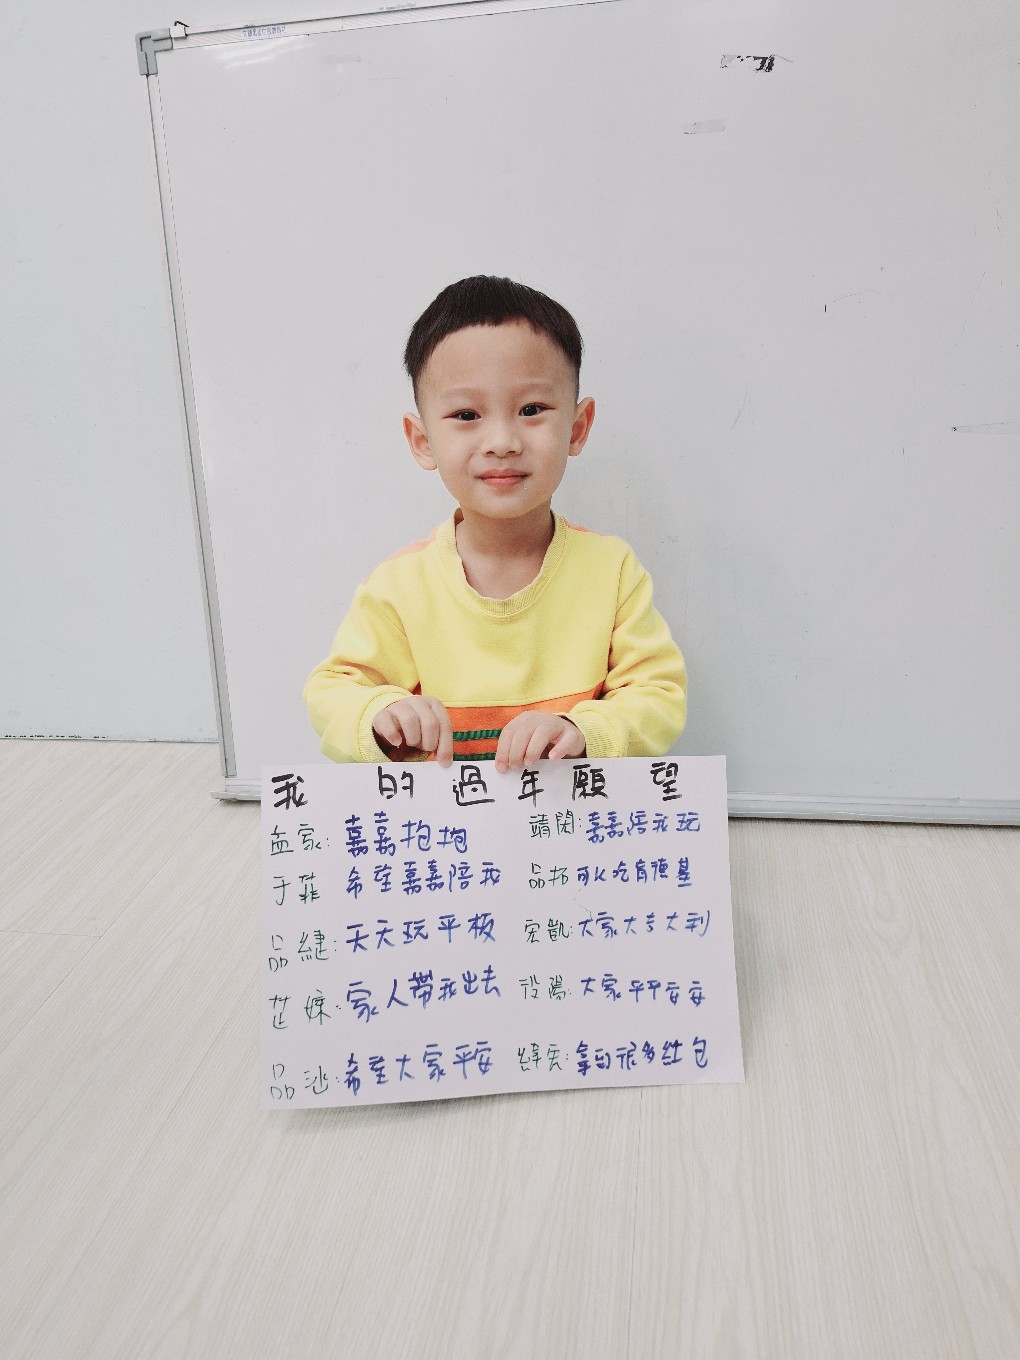 我的過年願望
孟家: 嘉嘉抱抱
于菲 希望嘉嘉陪我
品緁: 天天玩平板
芷婡: 家人帶我出去
品沙: 希望大家平安
靖閎: 嘉嘉陪我玩
品拓 可以吃肯德基
宏凱: 大家大吉大利
大家平平安安
緯宏: 拿到很多紅包